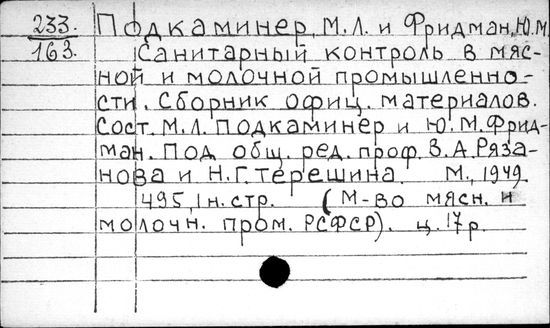 233. Подкаминер, М.Л. и Фридман, Ю.М.
163. Санитарный контроль в мяс-
ной и молочной промышленно-
сти. Сборник офиц. материалов.
Сост. М.Л. Подкаминер и Ю.М. Фрид-
ман. Под общ. ред. проф. В.А. Ряза-
нова и Н.Г. Терешина. М., 1949
495, 1 н. стр. (М-во мясн. и
молочн. пром. РСФСР). ц. 17 р.